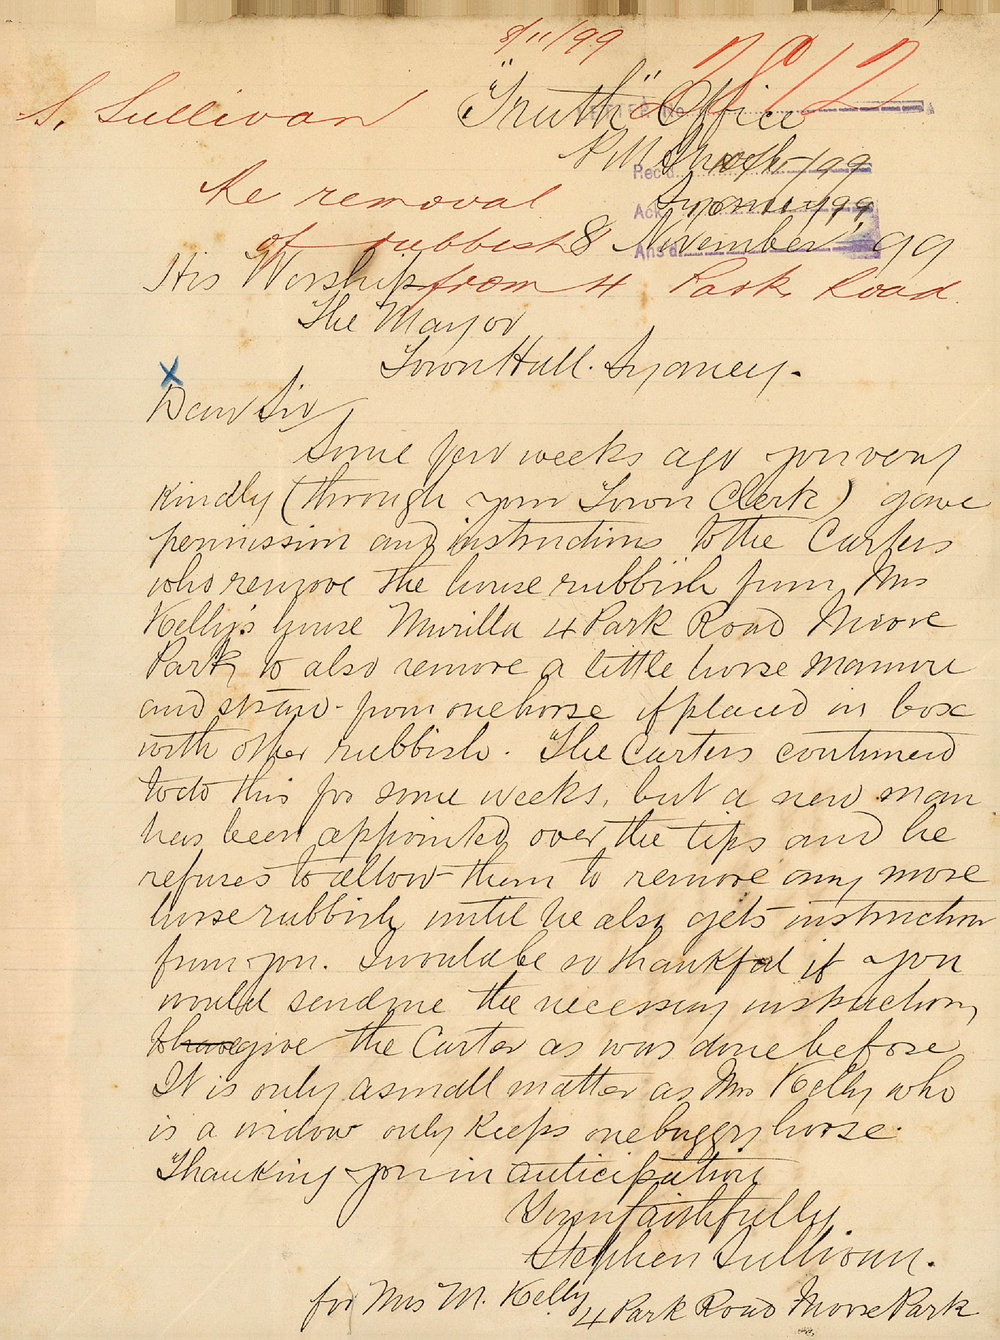 8/11/99
2812
S. Sullivan
"Truth" Office
LETTER No.
Rec'd
Re removal
Ack
Sydney
of rubbish
8 November '99
Ans'd
His Worship
from 4 Park Road.
The Mayor
Town Hall. Sydney.
X
Dear Sir
Some few weeks ago you very
kindly (through your Town Clerk) gave
permission and instructions to the Carters
who remove the house rubbish from Mrs
Kelly's house Murilla 4 Park Road Moore
Park, to also remove a little horse manure
and straw - from one horse if placed in box
with other rubbish. The Carters continued
to do this for some weeks, but a new man
has been appointed over the tips and he
refuses to allow them to remove any more
horse rubbish until he also gets instruction
from you. I would be so thankful if you
would send me the necessary instruction,
to have give the Carter as was done before
It is only a small matter as Mrs Kelly who
is a widow only keeps one buggy horse.
Thanking you in anticipation
Yours faithfully.
Stephen Sullivan.
for Mrs M. Kelly
4 Park Road Moore Park